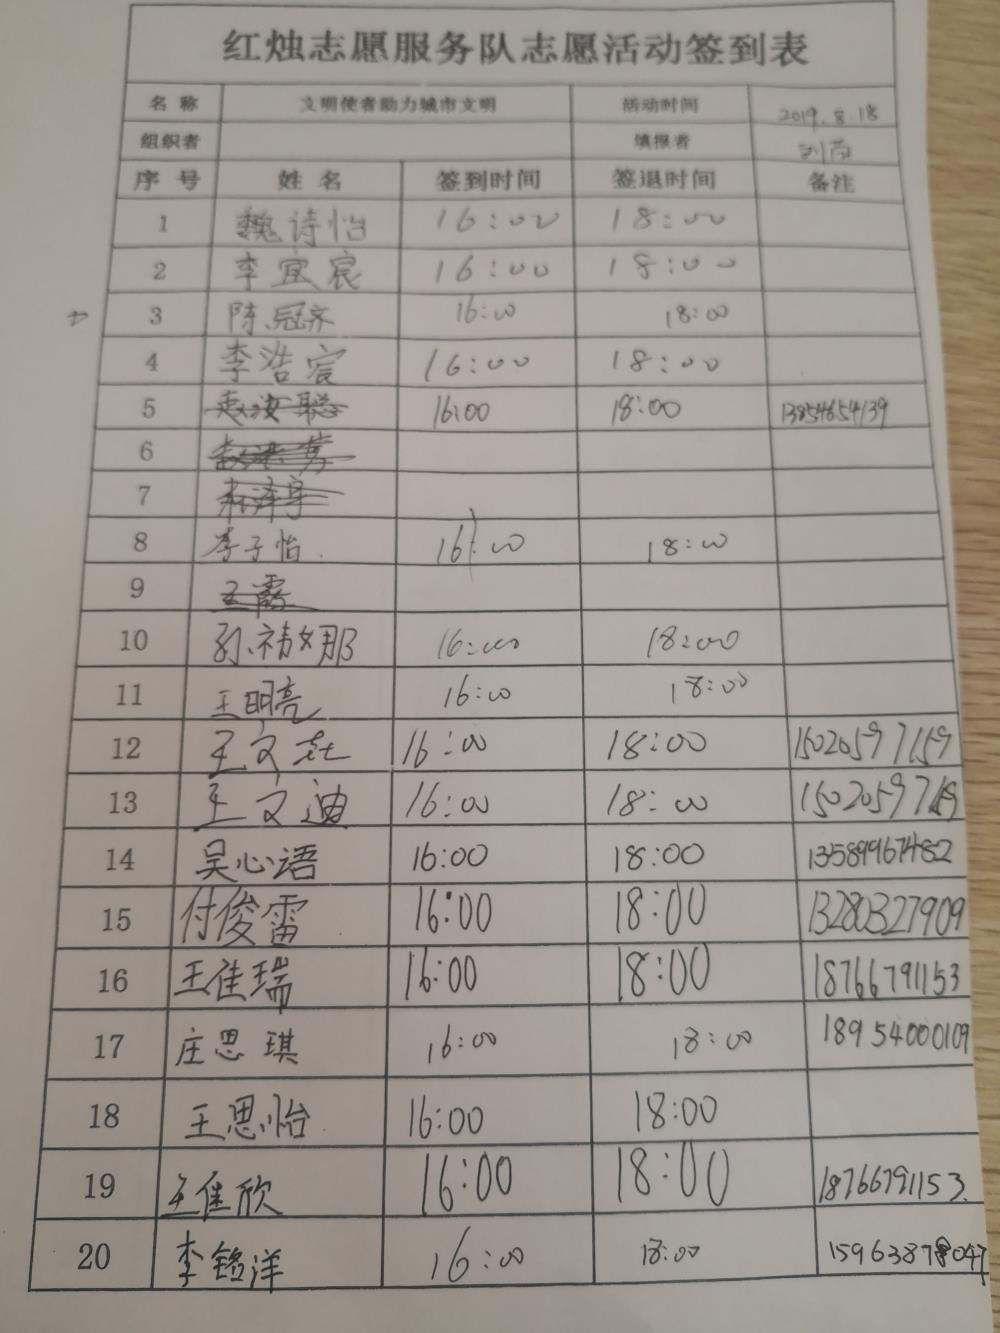 红烛志愿服务队志愿活动签到表
名 称 文明使者助力城市文明 活动时间 2019.8.18
组织者 填报者
序 号 姓 名 签到时间 签退时间 备注
1 魏诗怡 16:00 18:00
2 李宜宸 16:00 18:00
3 陈冠齐 16:00 18:00
4 李浩宸 16:00 18:00
5 16:00 18:00 13854654139
6
7
8 李子怡 16:00 18:00
9 王霞
10 孙祎娜 16:00 18:00
11 王明亮 16:00 18:00
12 王文 16:00 18:00 15020597159
13 王文迪 16:00 18:00
14 吴心语 16:00 18:00 13589967482
15 付俊雷 16:00 18:00 13280327909
16 王佳瑞 16:00 18:00 18766791153
17 庄思琪 16:00 18:00 18954000109
18 王思怡 16:00 18:00
19 王佳欣 16:00 18:00 18766791153
20 李铭洋 16:00 18:00